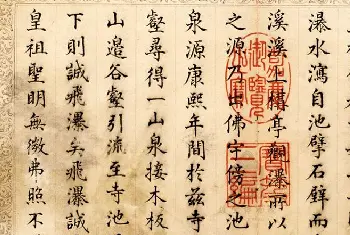 瀑水瀉自池擘石壁而
溪溪上構亭觀瀑所以
之源乃出佛宇傍之池
泉源康熙年間於茲寺
壑尋得一山泉接木板
山邉各壑引流至寺池
下則誠飛瀑矣飛瀑誠
皇祖聖明無微弗照不